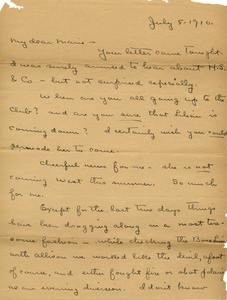 July 5 - 1910.
My dear Marie -
Your letter came tonight.
I was surely amused to hear about H.S.
& Co - but not surprised especially.
When are you all going up to the
Club? and are you sure that is
coming down? I certainly wish you could
persuade her to come.
Cheerful news for me - she is not
coming West this summer. So much
for me.
Except for the last two days things
have been dragging along in a most tire-
some fashion - while checking the
with Allison we worked like the devil, apart
of course, and either fought fire or
as an evening diversion. I don't know